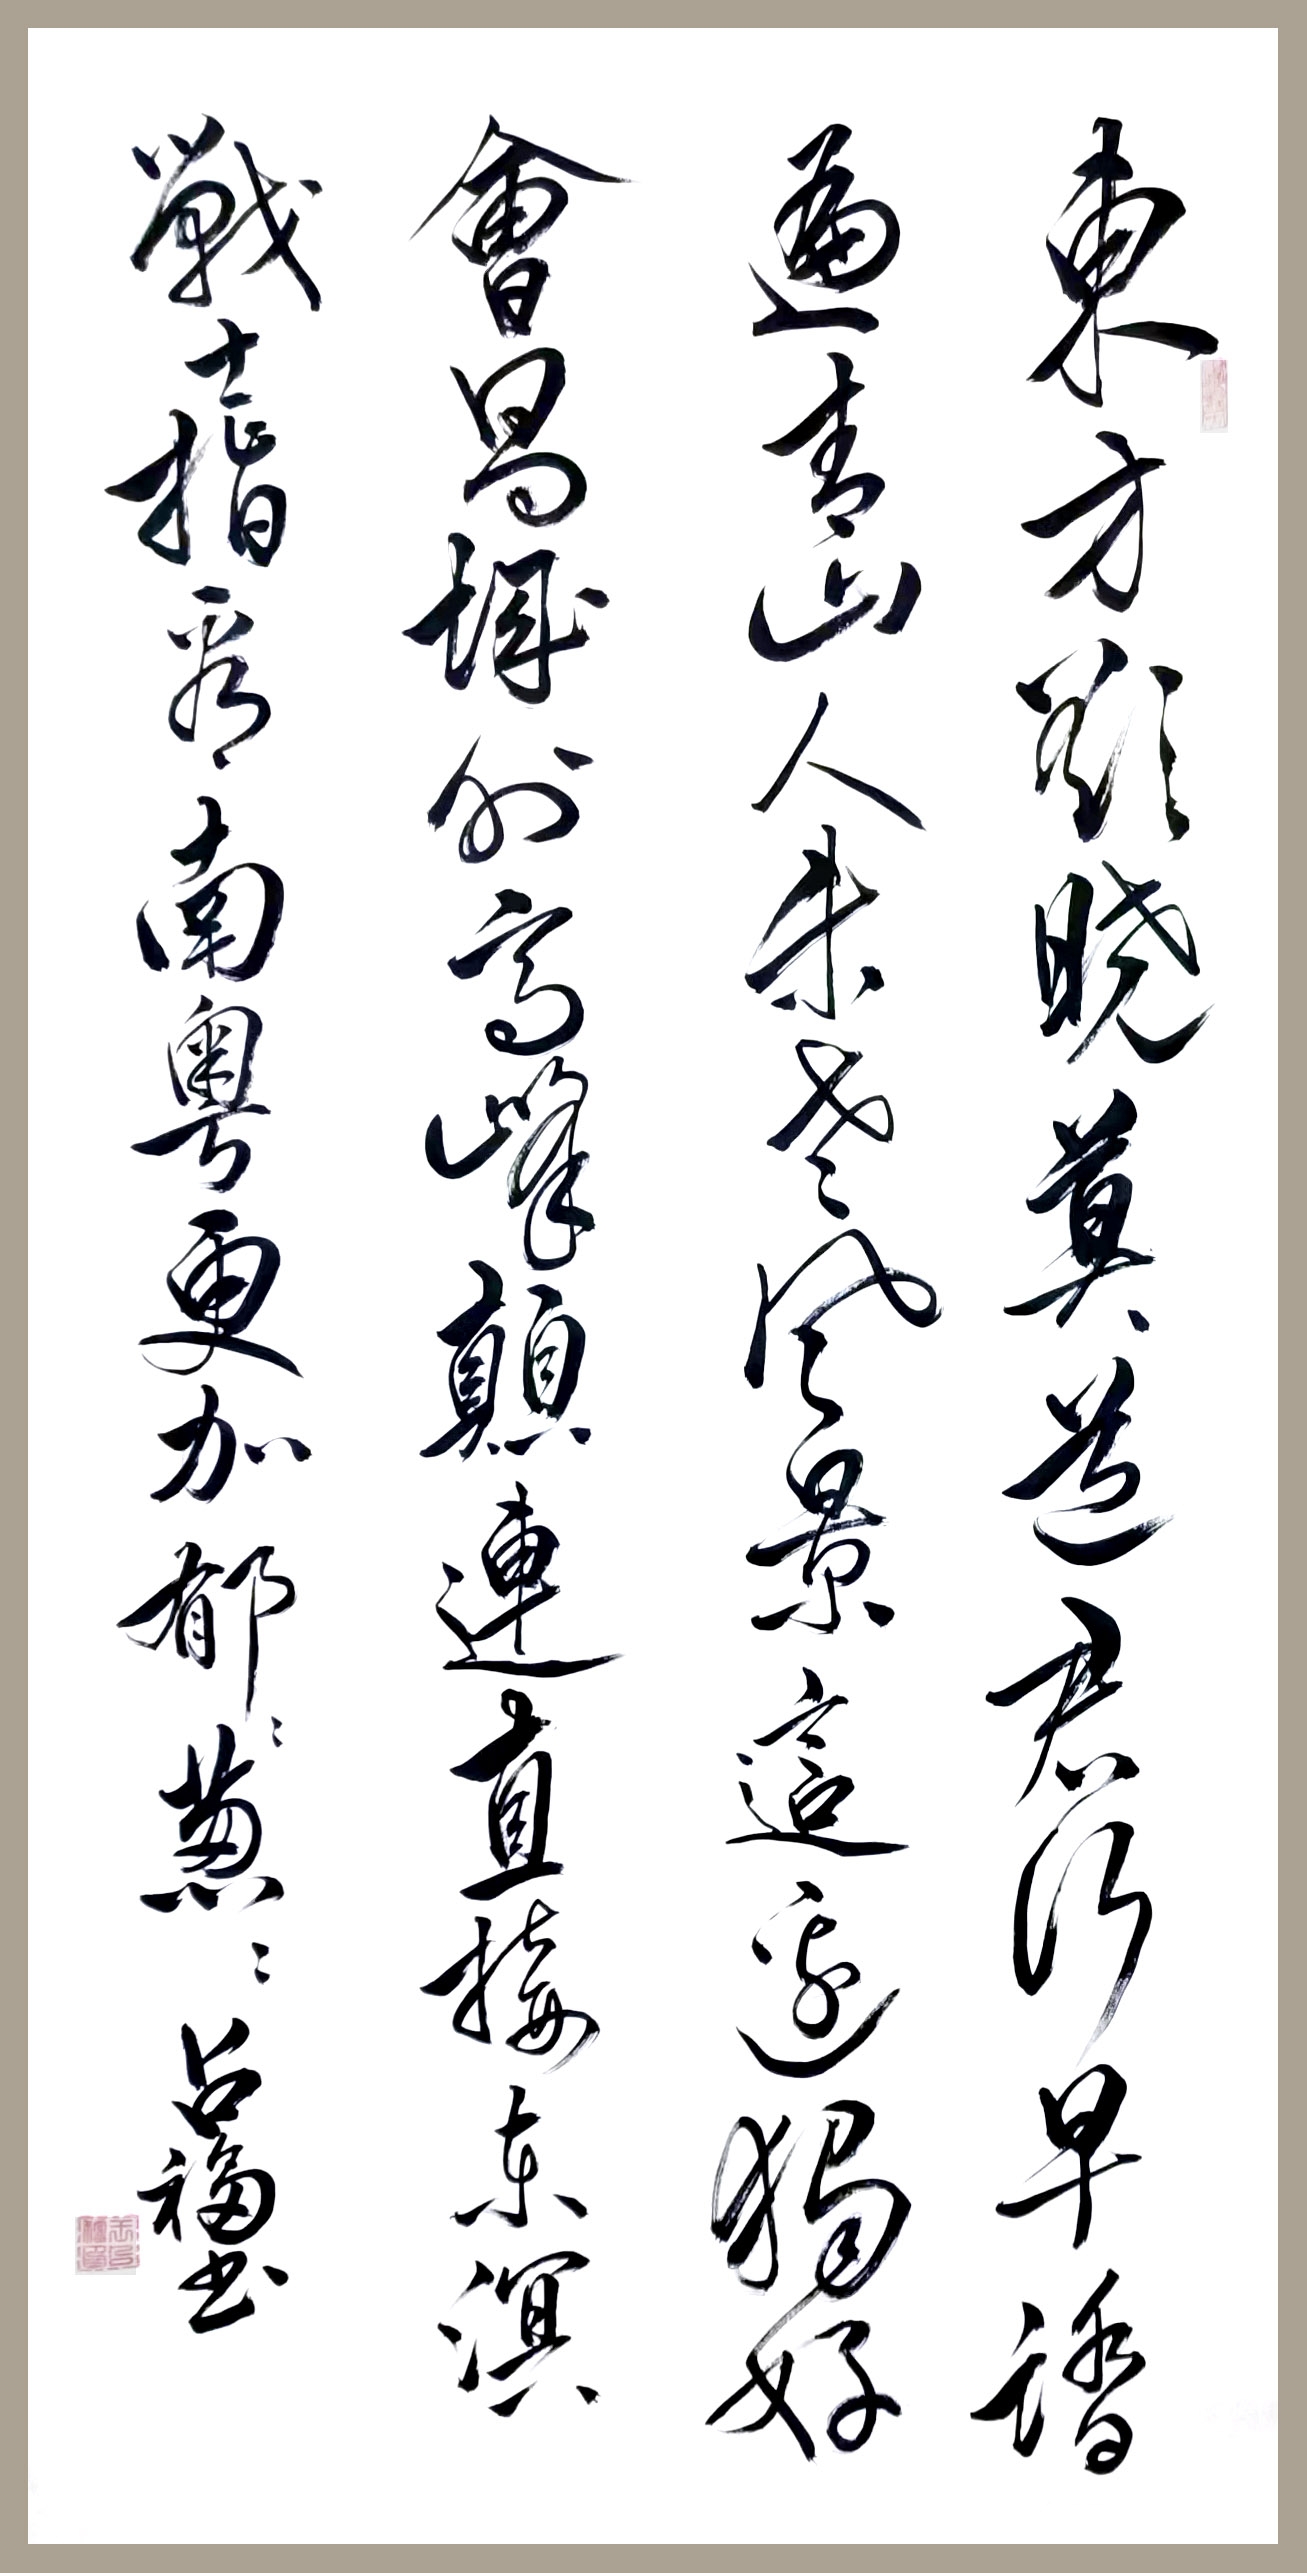 東方欲晓莫道君行早踏
遍青山人未老风景這邊獨好
會昌城外高峰顛連直接东溟
戰士指看南粤更加郁々葱々占福书